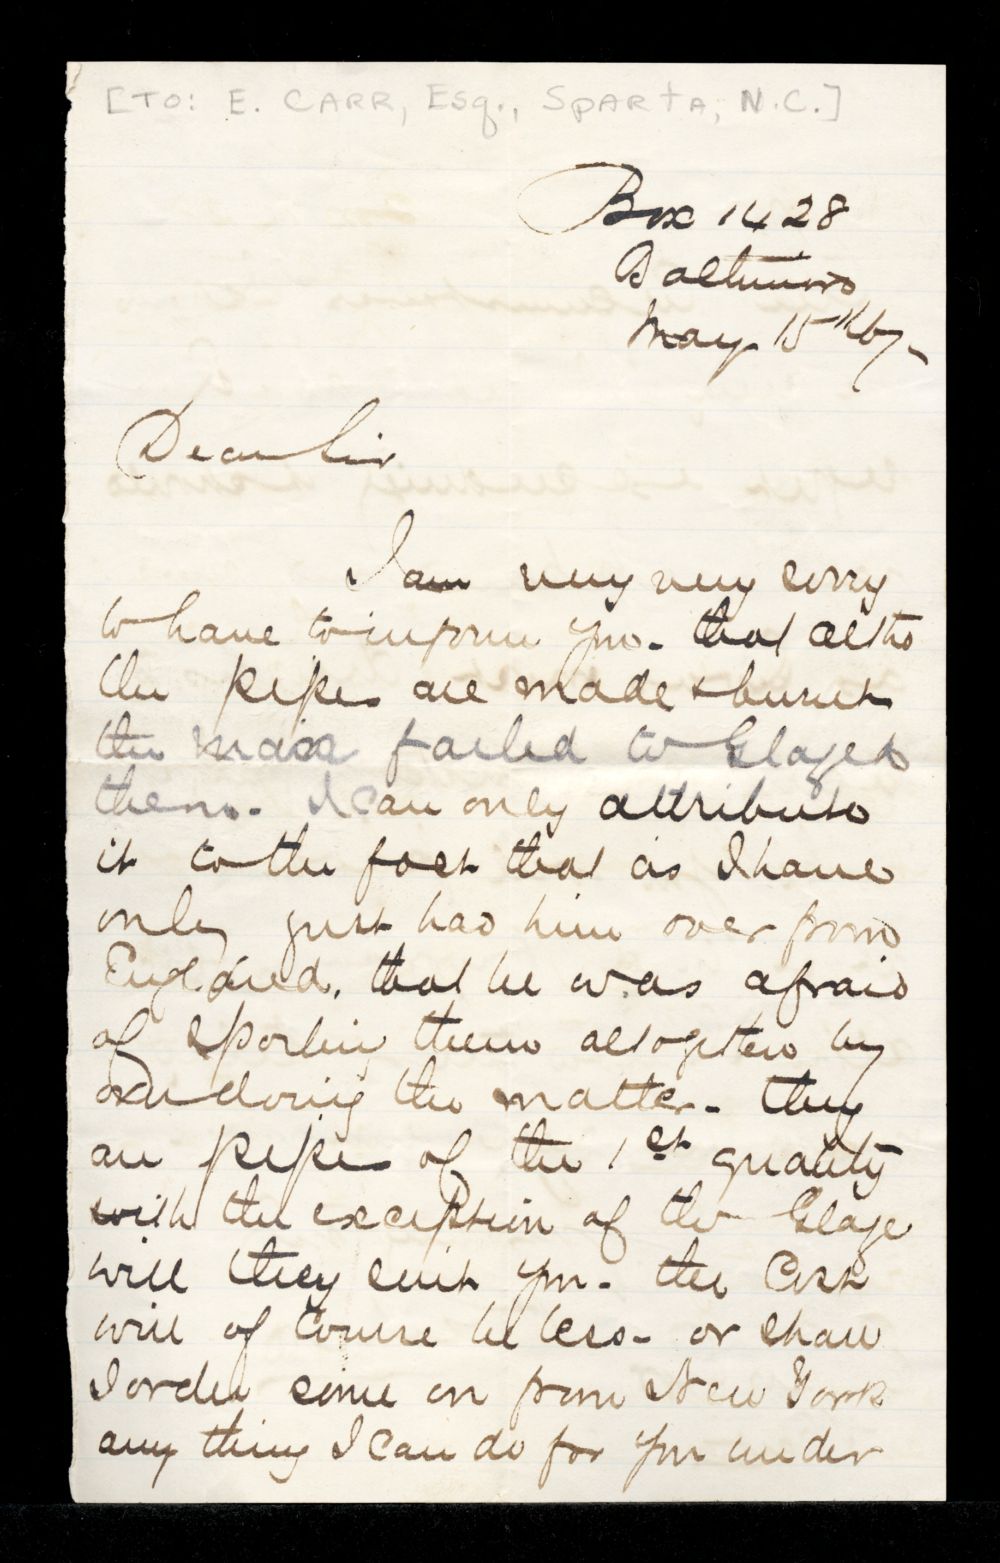 [TO: E. CARR, Esq., SPARTA, N.C.]
Box 1428
Baltimore
May 15th 67-
Dear Sir
I am very very sorry
to have to inform you - that altho
the pipes are made & burnt
the man failed to Glaze
them - I can only attribute
it to the fact that as I have
only just had him over from
England, that he was afraid
of spoiling them altogether by
over doing the matter - they
are pipes of the 1st quality
with the exception of the Glaze
will they suit you - the Cost
will of Course be less - or shall
I order some on from New York
any thing I can do for you under